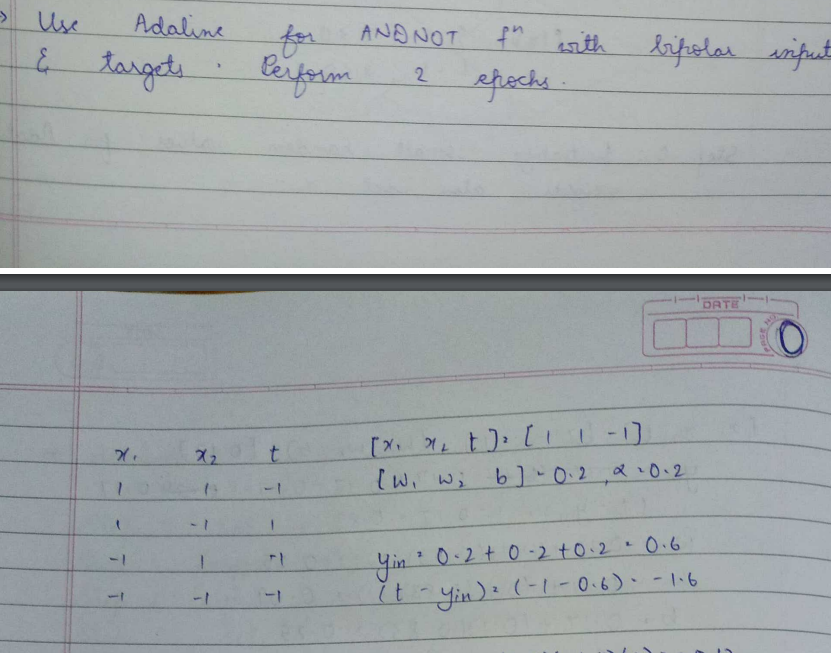 Use Adaline for ANDNOT fⁿ with bipolar input
& targets. Perform 2 epochs.
DATE
PAGE NO.
0
x₁ x₂ t [x₁ x₂ t] = [1 1 -1]
1 1 -1 [w₁ w₂ b] = 0.2, α = 0.2
1 -1 1
-1 1 -1 yin = 0.2 + 0.2 + 0.2 = 0.6
-1 -1 -1 (t - yin) = (-1 - 0.6) = -1.6